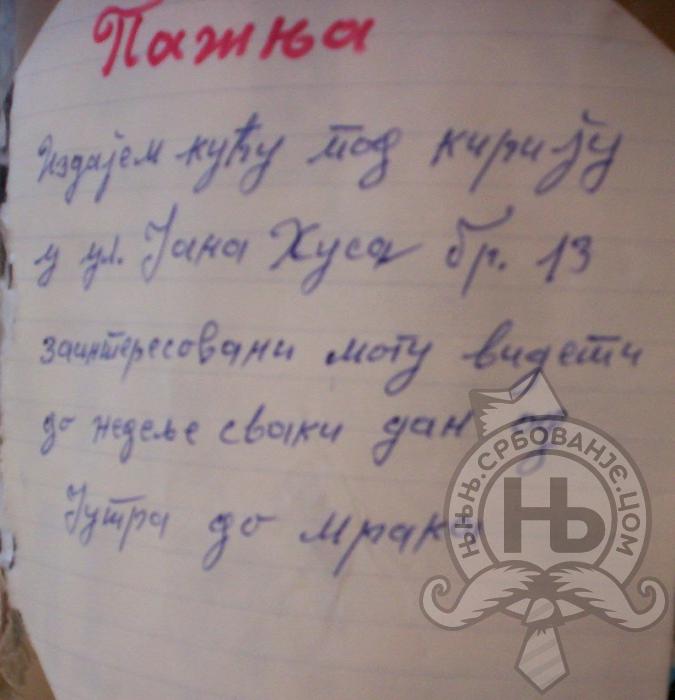 Пажња
Издајем кућу под кирију
у ул. Јана Хуса бр. 13
заинтересовани могу видети
до недеље сваки дан од
Јутра до мрака
ЊЊЊ.СРБОВАЊЕ.ЦОМ
Њ